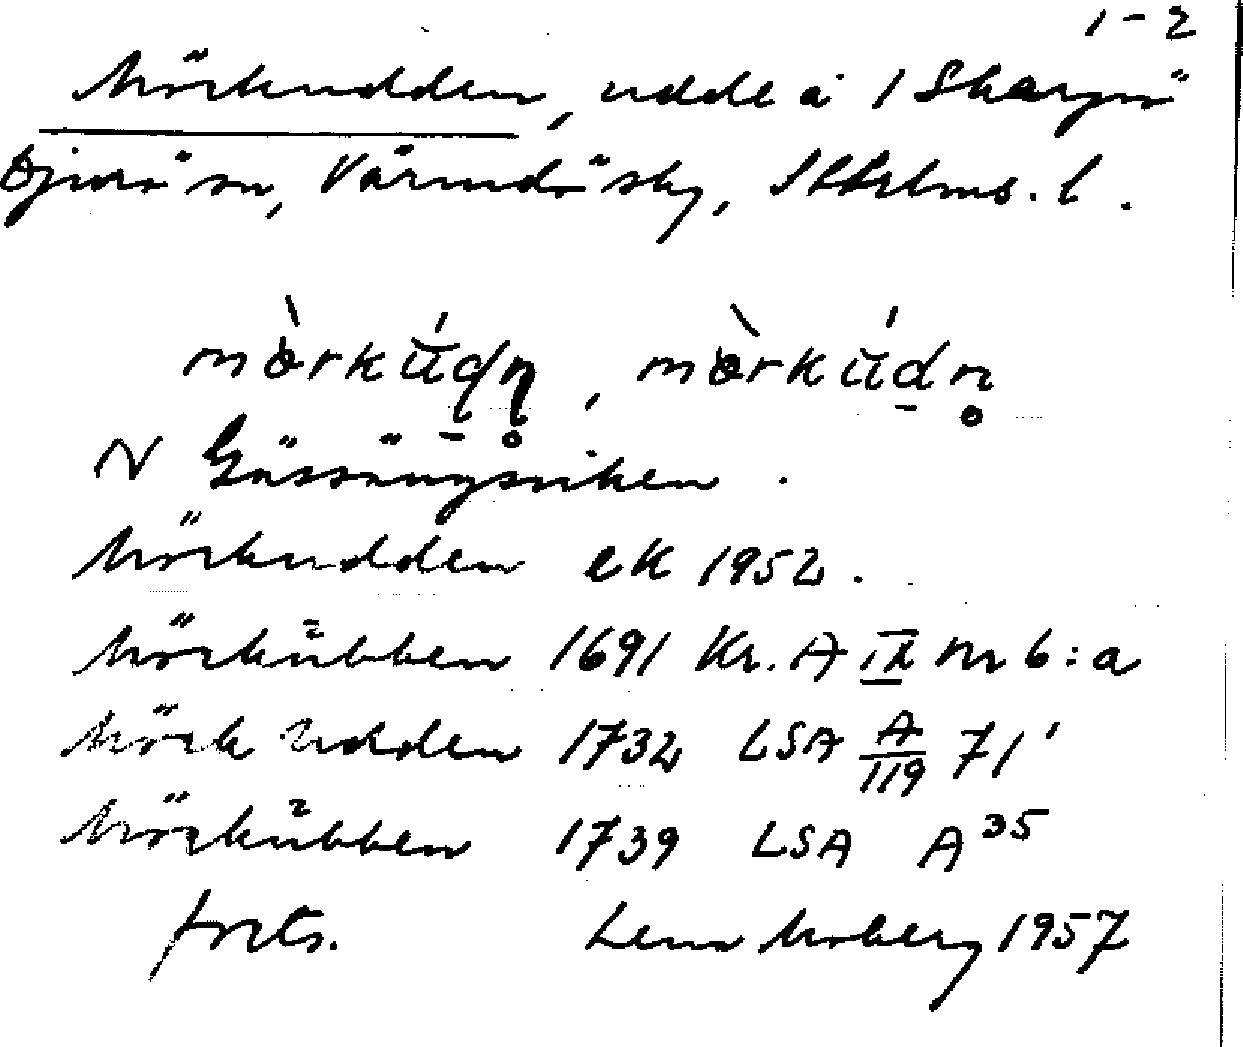 1-2
Mörkudden, udde å 1 Skarpö
Djurö sn, Värmdö sky, Sthlms. l.
mòrkúdn, mòrkúdn
N Gåssängsviken.
Mörkudden ek 1952.
Mörkübben 1691 Kr. A IX nr 6:a
Mörk Udden 1732 LSA A/119 71'
Mörkübben 1739 LSA A 35
forts. Lena Moberg 1957